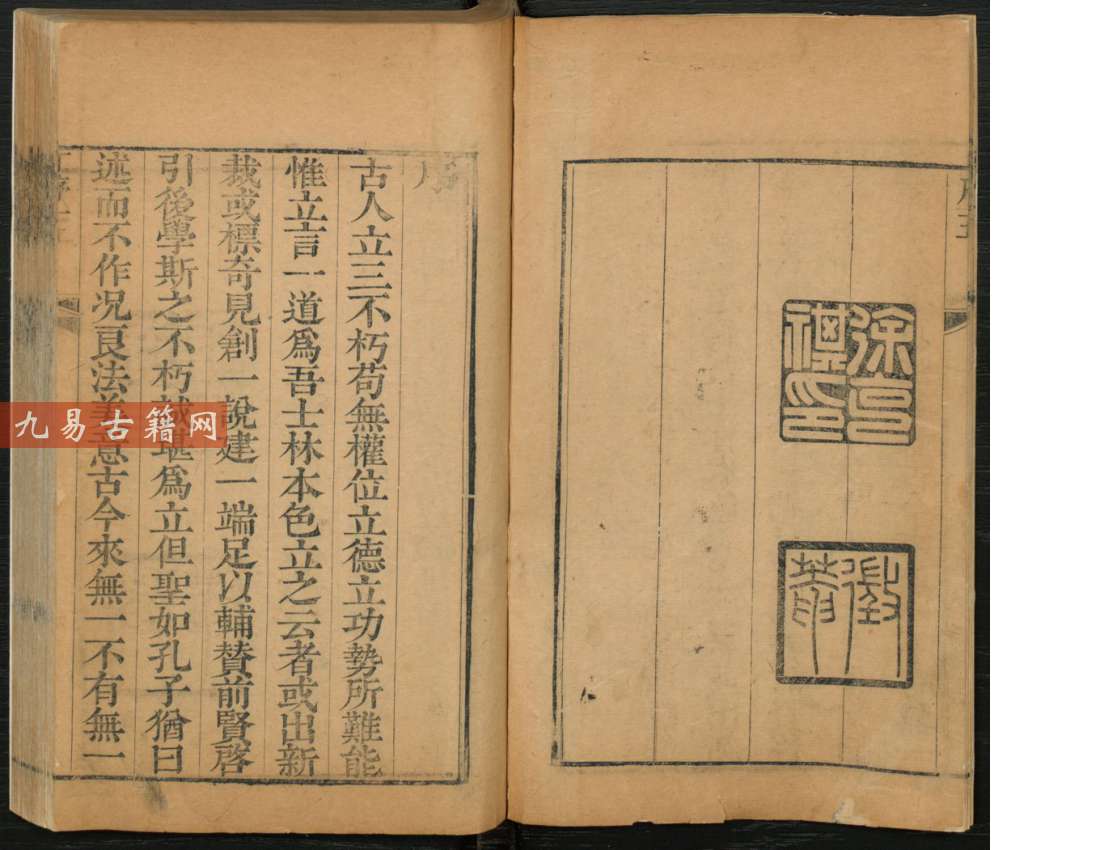 序五
徐與
禩印
序
古人立三不朽苟無權位立德立功勢所難能
惟立言一道爲吾士林本色立之云者或出新
裁或標奇見創一說建一端足以輔賛前賢啓
引後學斯之不朽 堪爲立但聖如孔子猶曰
述而不作况良法美意古今來無一不有無一
九易古籍网